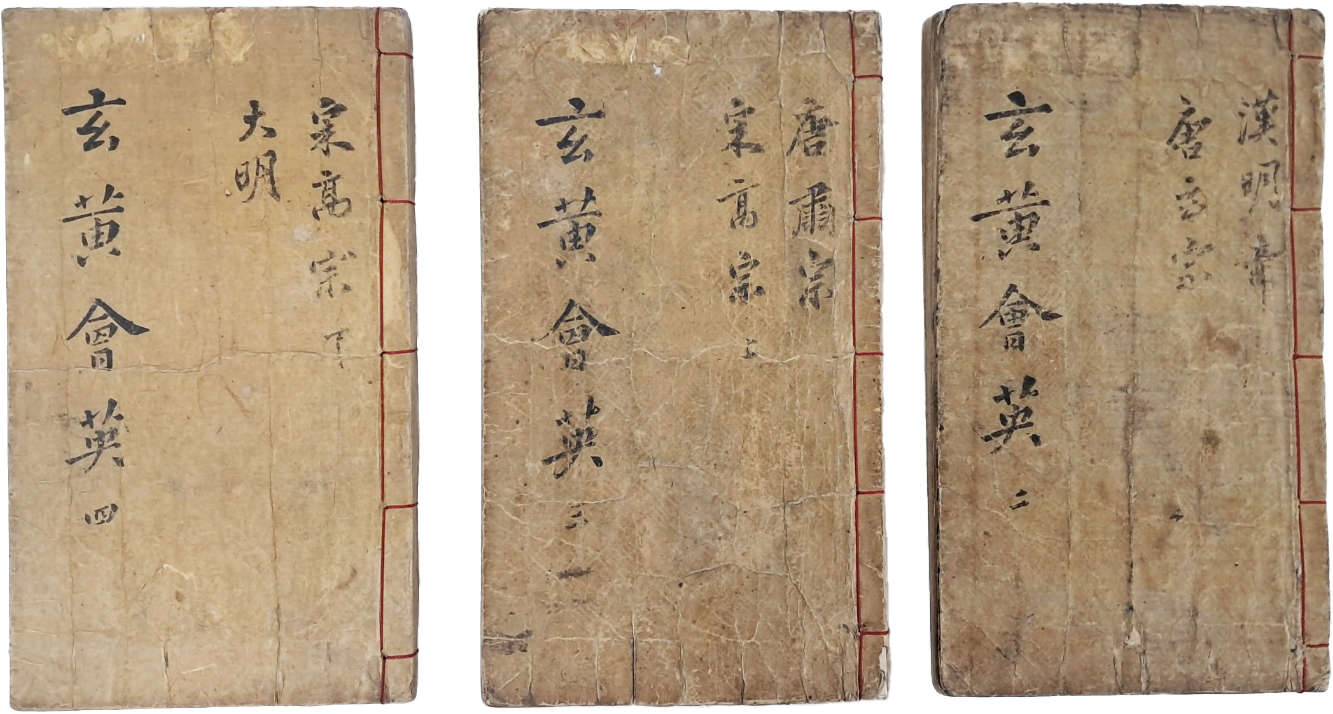 漢明帝
唐玄宗
玄黃會英 二
唐肅宗
宋高宗 上
玄黃會英 三
宋高宗 下
大明
玄黃會英 四